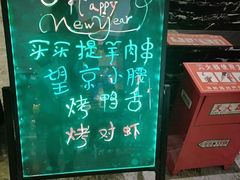 Happy
New Year
买买提羊肉串
望京小腰
烤鸭舌
烤对虾
灭火器